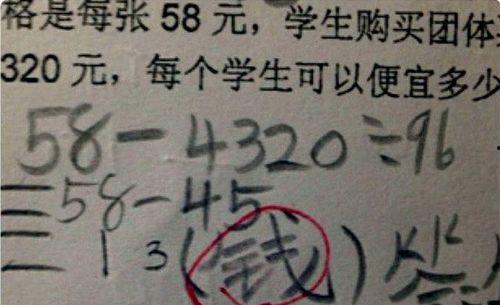 格是每张 58 元，学生购买团体
320 元，每个学生可以便宜多少
58-4320÷96
=58-45
=13(钱)答